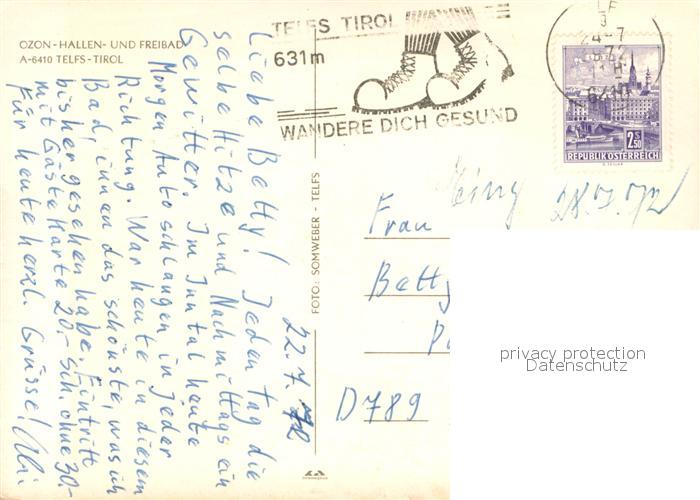 OZON-HALLEN- UND FREIBAD
A-6410 TELFS-TIROL
TELFS TIROL
631m
WANDERE DICH GESUND
24-7
72
6410
2.50
REPUBLIK ÖSTERREICH
22.7.72
Liebe Betty! Jeden Tag die
selbe Hitze und Nachmittags ein
Gewitter. Im Inntal heute
Morgen Autoschlangen in jeder
Richtung. War heute in diesem
Bad, innen das schönste, was ich
bisher gesehen habe. Eintritt
mit Gästekarte 20.- Sch. ohne 30.-
Für heute herzl. Grüsse!
FOTO: SOMWEBER - TELFS
28.7.72
Frau
Betty
D 789
privacy protection
Datenschutz